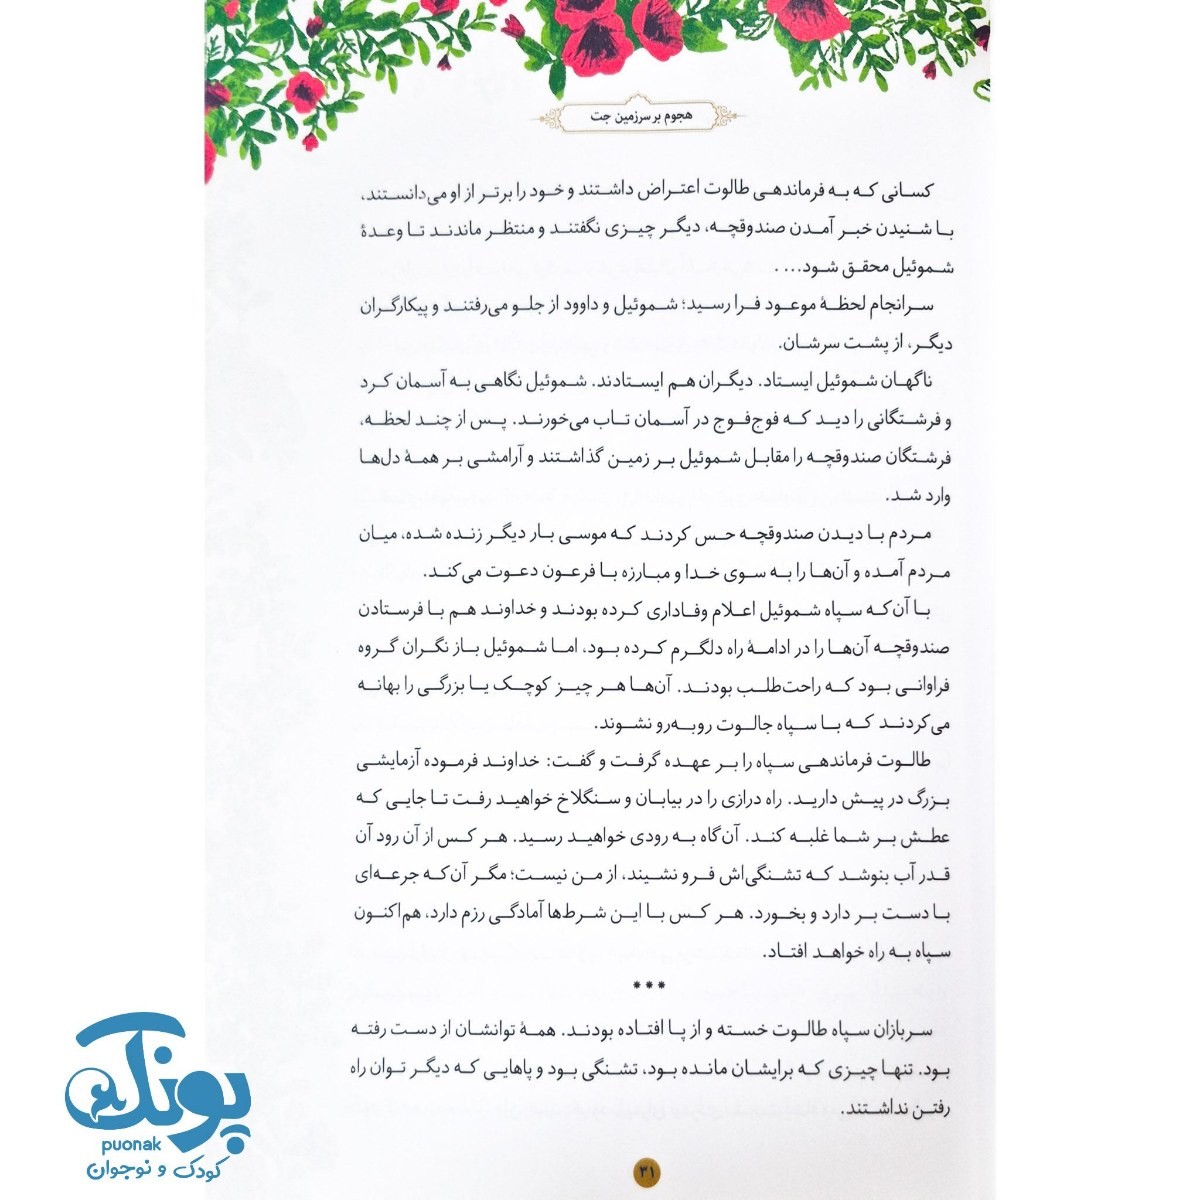 هجوم بر سرزمین جت
کسانی که به فرماندهی طالوت اعتراض داشتند و خود را برتر از او می‌دانستند،
با شنیدن خبر آمدن صندوقچه، دیگر چیزی نگفتند و منتظر ماندند تا وعدهٔ
شموئیل محقق شود... .
سرانجام لحظهٔ موعود فرا رسید؛ شموئیل و داوود از جلو می‌رفتند و پیکارگران
دیگر، از پشت سرشان.
ناگهان شموئیل ایستاد. دیگران هم ایستادند. شموئیل نگاهی به آسمان کرد
و فرشتگانی را دید که فوج‌فوج در آسمان تاب می‌خورند. پس از چند لحظه،
فرشتگان صندوقچه را مقابل شموئیل بر زمین گذاشتند و آرامشی بر همهٔ دل‌ها
وارد شد.
مردم با دیدن صندوقچه حس کردند که موسی بار دیگر زنده شده، میان
مردم آمده و آن‌ها را به سوی خدا و مبارزه با فرعون دعوت می‌کند.
با آن‌که سپاه شموئیل اعلام وفاداری کرده بودند و خداوند هم با فرستادن
صندوقچه آن‌ها را در ادامهٔ راه دلگرم کرده بود، اما شموئیل باز نگران گروه
فراوانی بود که راحت‌طلب بودند. آن‌ها هر چیز کوچک یا بزرگی را بهانه
می‌کردند که با سپاه جالوت روبه‌رو نشوند.
طالوت فرماندهی سپاه را بر عهده گرفت و گفت: خداوند فرموده آزمایشی
بزرگ در پیش دارید. راه درازی را در بیابان و سنگلاخ خواهید رفت تا جایی که
عطش بر شما غلبه کند. آن‌گاه به رودی خواهید رسید. هر کس از آن رود آن
قدر آب بنوشد که تشنگی‌اش فرو نشیند، از من نیست؛ مگر آن‌که جرعه‌ای
با دست بر دارد و بخورد. هر کس با این شرط‌ها آمادگی رزم دارد، هم‌اکنون
سپاه به راه خواهد افتاد.
***
سربازان سپاه طالوت خسته و از پا افتاده بودند. همهٔ توانشان از دست رفته
بود. تنها چیزی که برایشان مانده بود، تشنگی بود و پاهایی که دیگر توان راه
رفتن نداشتند.
۳۱
پونک
puonak
کودک و نوجوان